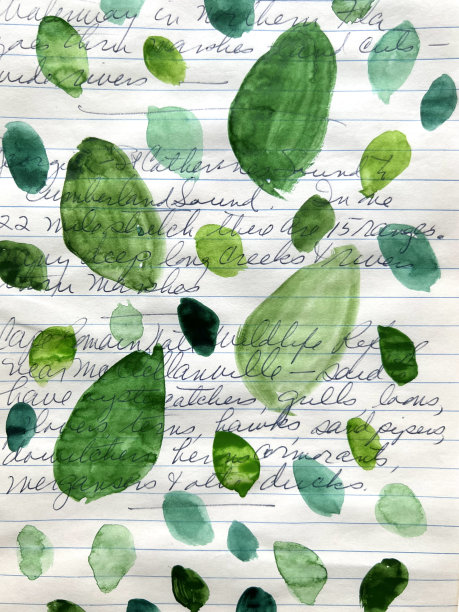 Waterway in Northern Fla
goes thru marshes and cuts —
wide rivers —
Georgia - St Catherine Sound &
Cumberland Sound. In one
22 mile stretch there are 15 ranges.
many deep, long creeks & rivers
thru marshes
Cape Romain Nat'l Wildlife Ref
near McClellanville — said
have oystercatchers, gulls, loons,
plovers, terns, hawks, sandpipers,
dowitchers, herons, cormorants,
mergansers & other ducks.